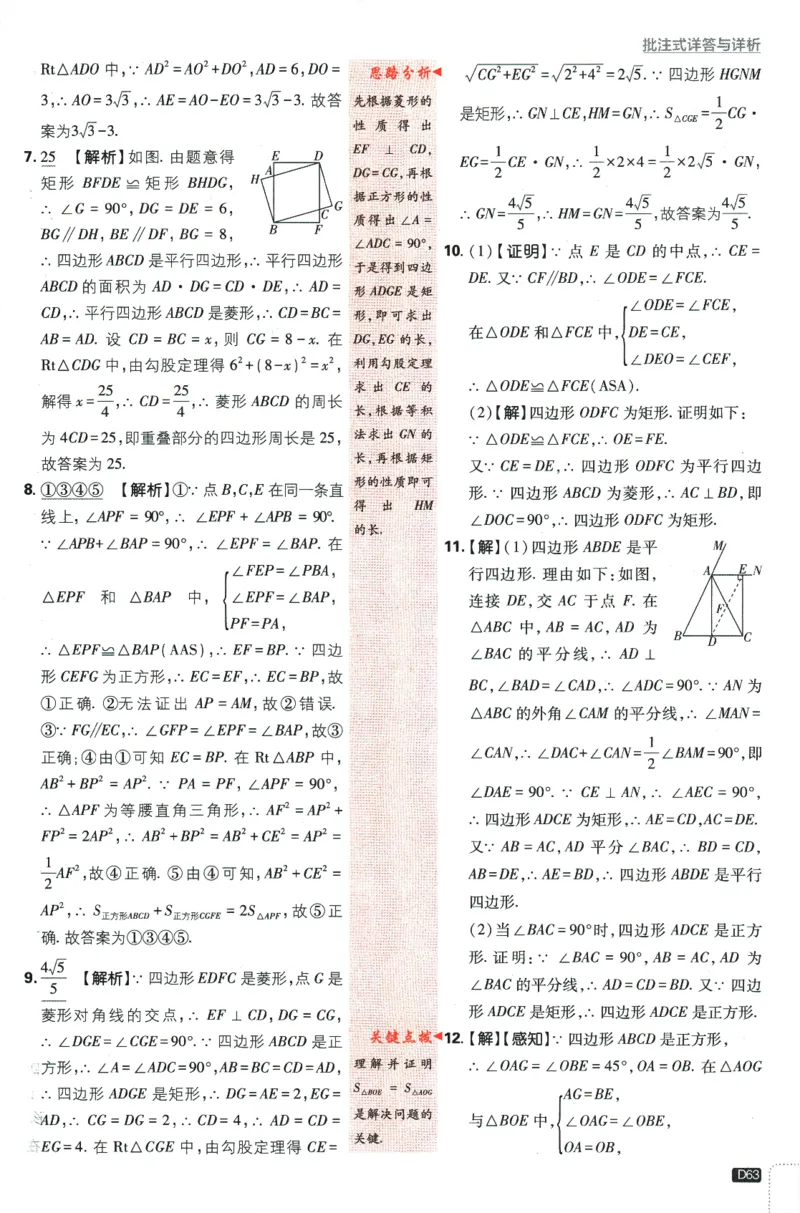 批注式详答与详析
Rt△ADO 中,∵ AD²=AO²+DO²,AD=6,DO=
3,∴ AO=3√3,∴ AE=AO-EO=3√3-3. 故答
案为3√3-3.
7. 25 【解析】如图. 由题意得
矩形 BFDE ≌ 矩形 BHDG,
∴ ∠G = 90°, DG = DE = 6,
BG∥DH, BE∥DF, BG = 8,
E D
H A
G
C
B F
∴ 四边形 ABCD 是平行四边形,∴ 平行四边形
ABCD 的面积为 AD·DG=CD·DE,∴ AD=
CD,∴ 平行四边形 ABCD 是菱形,∴ CD=BC=
AB=AD. 设 CD=BC=x, 则 CG=8-x. 在
Rt△CDG 中,由勾股定理得 6²+(8-x)²=x²,
解得 x=25/4,∴ CD=25/4,∴ 菱形 ABCD 的周长
为 4CD=25,即重叠部分的四边形周长是 25,
故答案为 25.
8. ①③④⑤ 【解析】①∵ 点 B,C,E 在同一条直
线上, ∠APF = 90°,∴ ∠EPF + ∠APB = 90°.
∵ ∠APB+∠BAP=90°,∴ ∠EPF=∠BAP. 在
△EPF 和 △BAP 中, {∠FEP=∠PBA,
∠EPF=∠BAP,
PF=PA,
∴ △EPF≌△BAP(AAS),∴ EF=BP. ∵ 四边
形 CEFG 为正方形,∴ EC=EF,∴ EC=BP,故
①正确. ②无法证出 AP=AM, 故②错误.
③∵ FG∥EC,∴ ∠GFP=∠EPF=∠BAP,故③
正确;④由①可知 EC=BP. 在 Rt△ABP 中,
AB²+BP²=AP². ∵ PA=PF, ∠APF=90°,
∴ △APF 为等腰直角三角形,∴ AF²=AP²+
FP²=2AP²,∴ AB²+BP²=AB²+CE²=AP²=
1/2AF²,故④正确. ⑤由④可知,AB²+CE²=
AP²,∴ S正方形ABCD+S正方形CGFE=2S△APF,故⑤正
确. 故答案为①③④⑤.
9. 4√5/5 【解析】∵ 四边形 EDFC 是菱形,点 G 是
菱形对角线的交点,∴ EF⊥CD, DG=CG,
∴ ∠DGE=∠CGE=90°. ∵ 四边形 ABCD 是正
方形,∴ ∠A=∠ADC=90°,AB=BC=CD=AD,
∴ 四边形 ADGE 是矩形,∴ DG=AE=2,EG=
AD,∴ CG=DG=2,∴ CD=4,∴ AD=CD=
EG=4. 在 Rt△CGE 中,由勾股定理得 CE=
思路分析
先根据菱形的
性质得出
EF ⊥ CD,
DG=CG,再根
据正方形的性
质得出∠A=
∠ADC=90°,
于是得到四边
形 ADGE 是矩
形,即可求出
DG,EG 的长,
利用勾股定理
求出 CE 的
长,根据等积
法求出 GN 的
长,再根据矩
形的性质即可
得出 HM
的长.
关键点拨
理解并证明
S△BOE = S△AOG
是解决问题的
关键.
√(CG²+EG²)=√(2²+4²)=2√5. ∵ 四边形 HGNM
是矩形,∴ GN⊥CE,HM=GN,∴ S△CGE=1/2CG·
EG=1/2CE·GN,∴ 1/2×2×4=1/2×2√5·GN,
∴ GN=4√5/5,∴ HM=GN=4√5/5,故答案为4√5/5.
10. (1)【证明】∵ 点 E 是 CD 的中点,∴ CE=
DE. 又∵ CF∥BD,∴ ∠ODE=∠FCE.
在△ODE 和△FCE 中,{∠ODE=∠FCE,
DE=CE,
∠DEO=∠CEF,
∴ △ODE≌△FCE(ASA).
(2)【解】四边形 ODFC 为矩形. 证明如下:
∵ △ODE≌△FCE,∴ OE=FE.
又∵ CE=DE,∴ 四边形 ODFC 为平行四边
形. ∵ 四边形 ABCD 为菱形,∴ AC⊥BD,即
∠DOC=90°,∴ 四边形 ODFC 为矩形.
11.【解】(1)四边形 ABDE 是平
行四边形. 理由如下:如图,
连接 DE,交 AC 于点 F. 在
△ABC 中, AB=AC, AD 为
∠BAC 的平分线,∴ AD⊥
M
A E N
F
B D C
BC,∠BAD=∠CAD,∴ ∠ADC=90°. ∵ AN 为
△ABC 的外角∠CAM 的平分线,∴ ∠MAN=
∠CAN,∴ ∠DAC+∠CAN=1/2∠BAM=90°,即
∠DAE=90°. ∵ CE⊥AN,∴ ∠AEC=90°,
∴ 四边形 ADCE 为矩形,∴ AE=CD,AC=DE.
又∵ AB=AC,AD 平分∠BAC,∴ BD=CD,
AB=DE,∴ AE=BD,∴ 四边形 ABDE 是平行
四边形.
(2)当∠BAC=90°时,四边形 ADCE 是正方
形. 证明:∵ ∠BAC=90°, AB=AC, AD 为
∠BAC 的平分线,∴ AD=CD=BD. 又∵ 四边
形 ADCE 是矩形,∴ 四边形 ADCE 是正方形.
12.【解】【感知】∵ 四边形 ABCD 是正方形,
∴ ∠OAG=∠OBE=45°,OA=OB. 在△AOG
与△BOE 中,{AG=BE,
∠OAG=∠OBE,
OA=OB,
D63